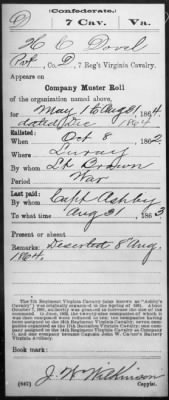 (Confederate.)
D 7 Cav. Va.
H C Dovel
Pvt, Co. D, 7 Reg't Virginia Cavalry.
Appears on
Company Muster Roll
of the organization named above,
for May 1 to Aug 31, 1864.
dated Dec 1864
Enlisted:
When Oct 8, 1862
Where Luray
By whom Lt Brown
Period War
Last paid:
By whom Capt Ashby
To what time Aug 31, 1863.
Present or absent
Remarks: Deserted 8 Aug.
1864.
The 7th Regiment Virginia Cavalry (also known as "Ashby's
Book mark:
J. W. Wilkinson
(642) Copyist.